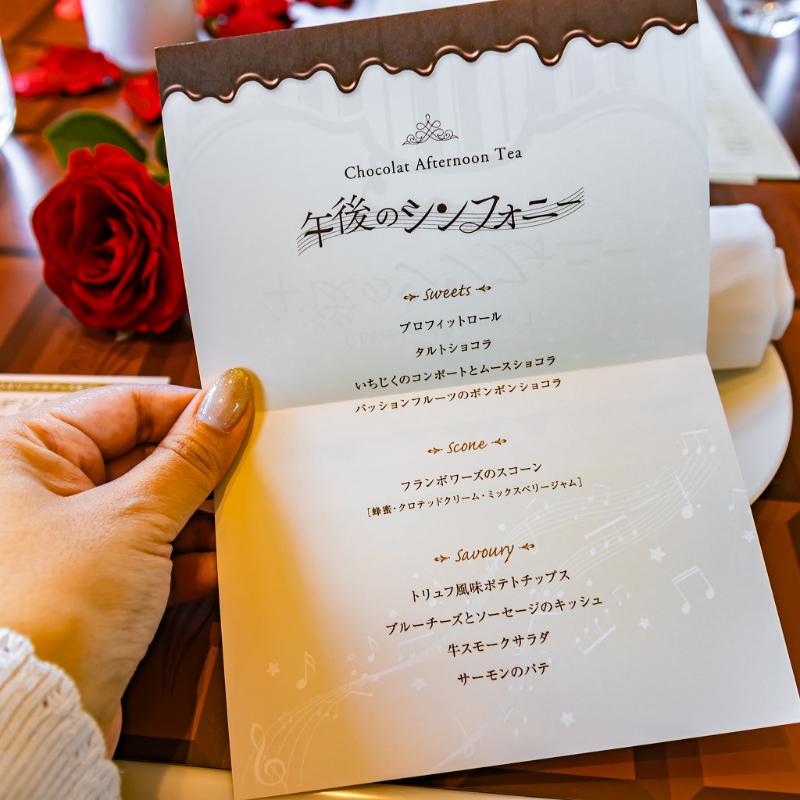 Chocolat Afternoon Tea
午後のシンフォニー
sweets
プロフィットロール
タルトショコラ
いちじくのコンポートとムースショコラ
パッションフルーツのボンボンショコラ
scone
フランボワーズのスコーン
[蜂蜜・クロテッドクリーム・ミックスベリージャム]
savoury
トリュフ風味ポテトチップス
ブルーチーズとソーセージのキッシュ
牛スモークサラダ
サーモンのパテ